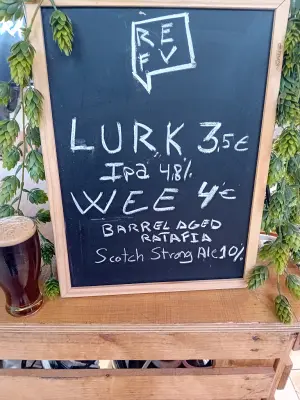 RE
FV
LURK 3,5€
Ipa 4,8%
WEE 4€
BARREL AGED
RATAFIA
Scotch Strong Ale 10%